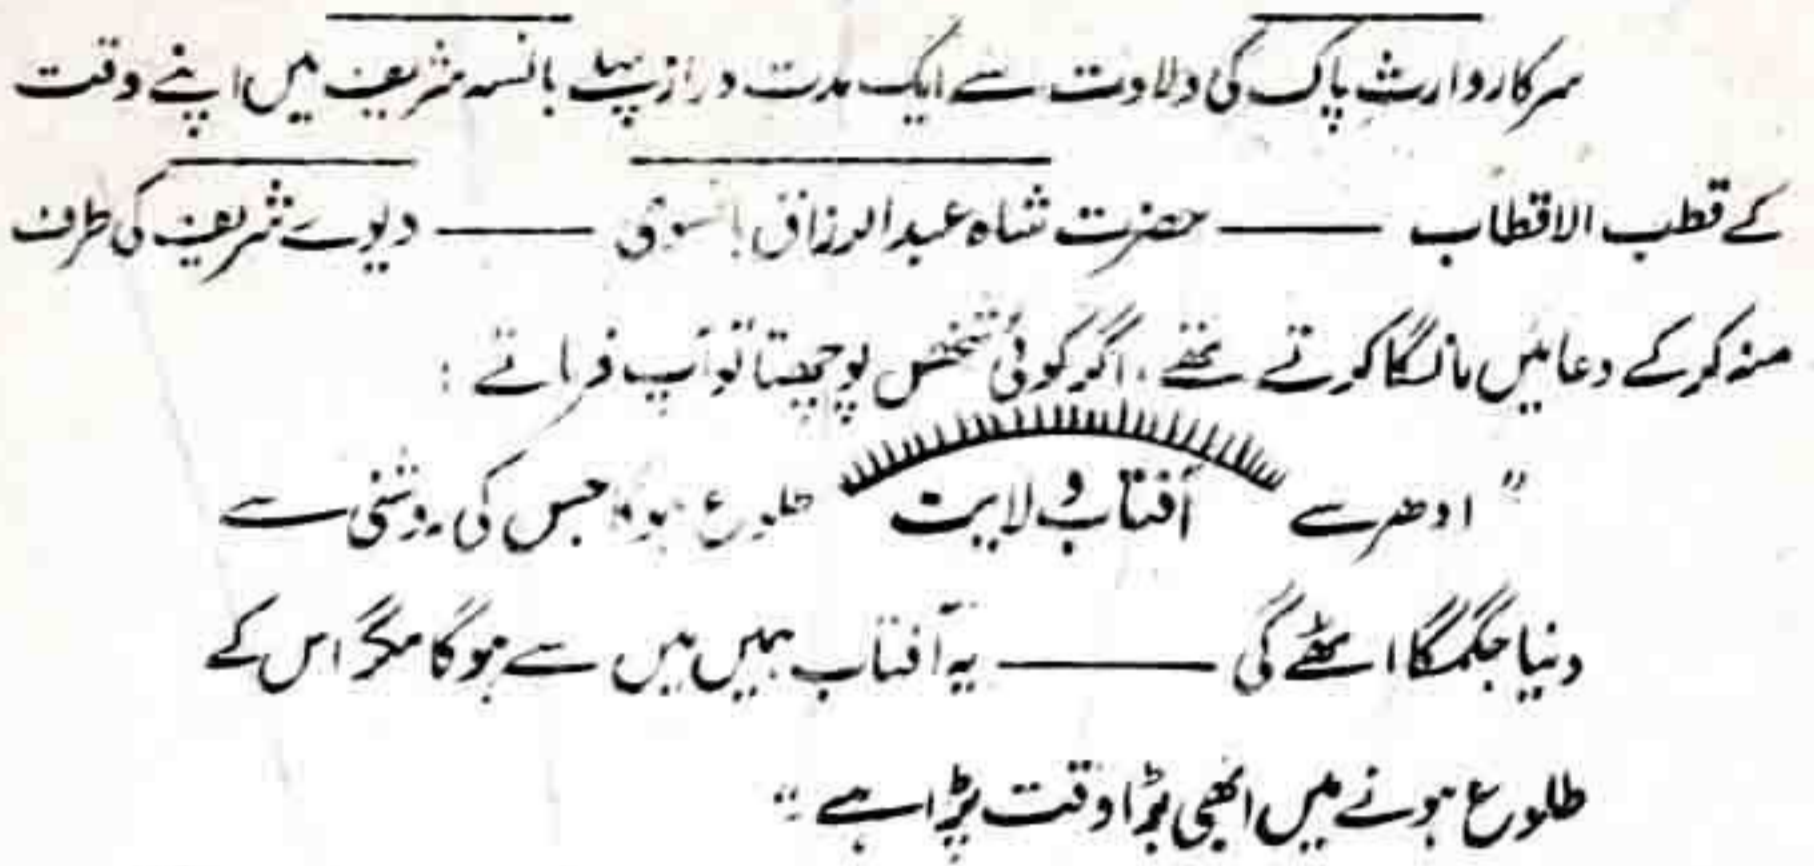 سرکار وارث پاک کی ولادت سے ایک مدت دراز پہلے بانسہ شریف میں اپنے وقت
کے قطب الاقطاب ——— حضرت شاہ عبدالرزاق بانسوی ——— دیوے شریف کی طرف
منہ کر کے دعائیں مانگا کرتے تھے، اگر کوئی شخص پوچھتا تو آپ فرماتے :
"ادھر سے آفتابِ ولایت طلوع ہوگا جس کی روشنی سے
دنیا جگمگا اٹھے گی ——— یہ آفتاب ہمیں میں سے ہوگا مگر اس کے
طلوع ہونے میں ابھی بڑا وقت پڑا ہے"